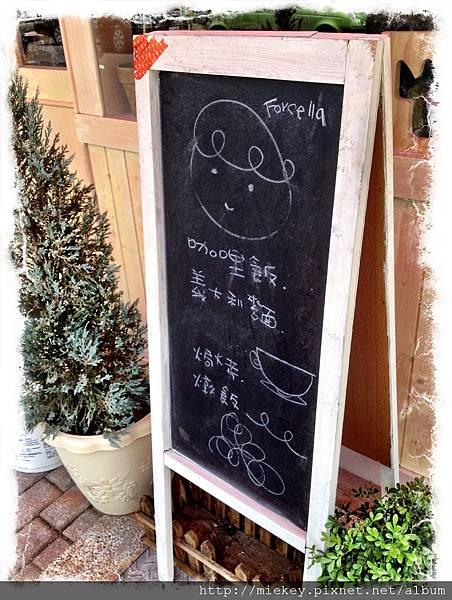 Forcella
咖哩飯.
義大利麵.
焗烤.
燉飯
http://miekey.pixnet.net/album